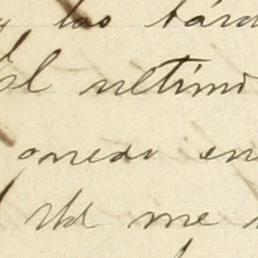 y las tard
El ultimo
quedo en
Ud me